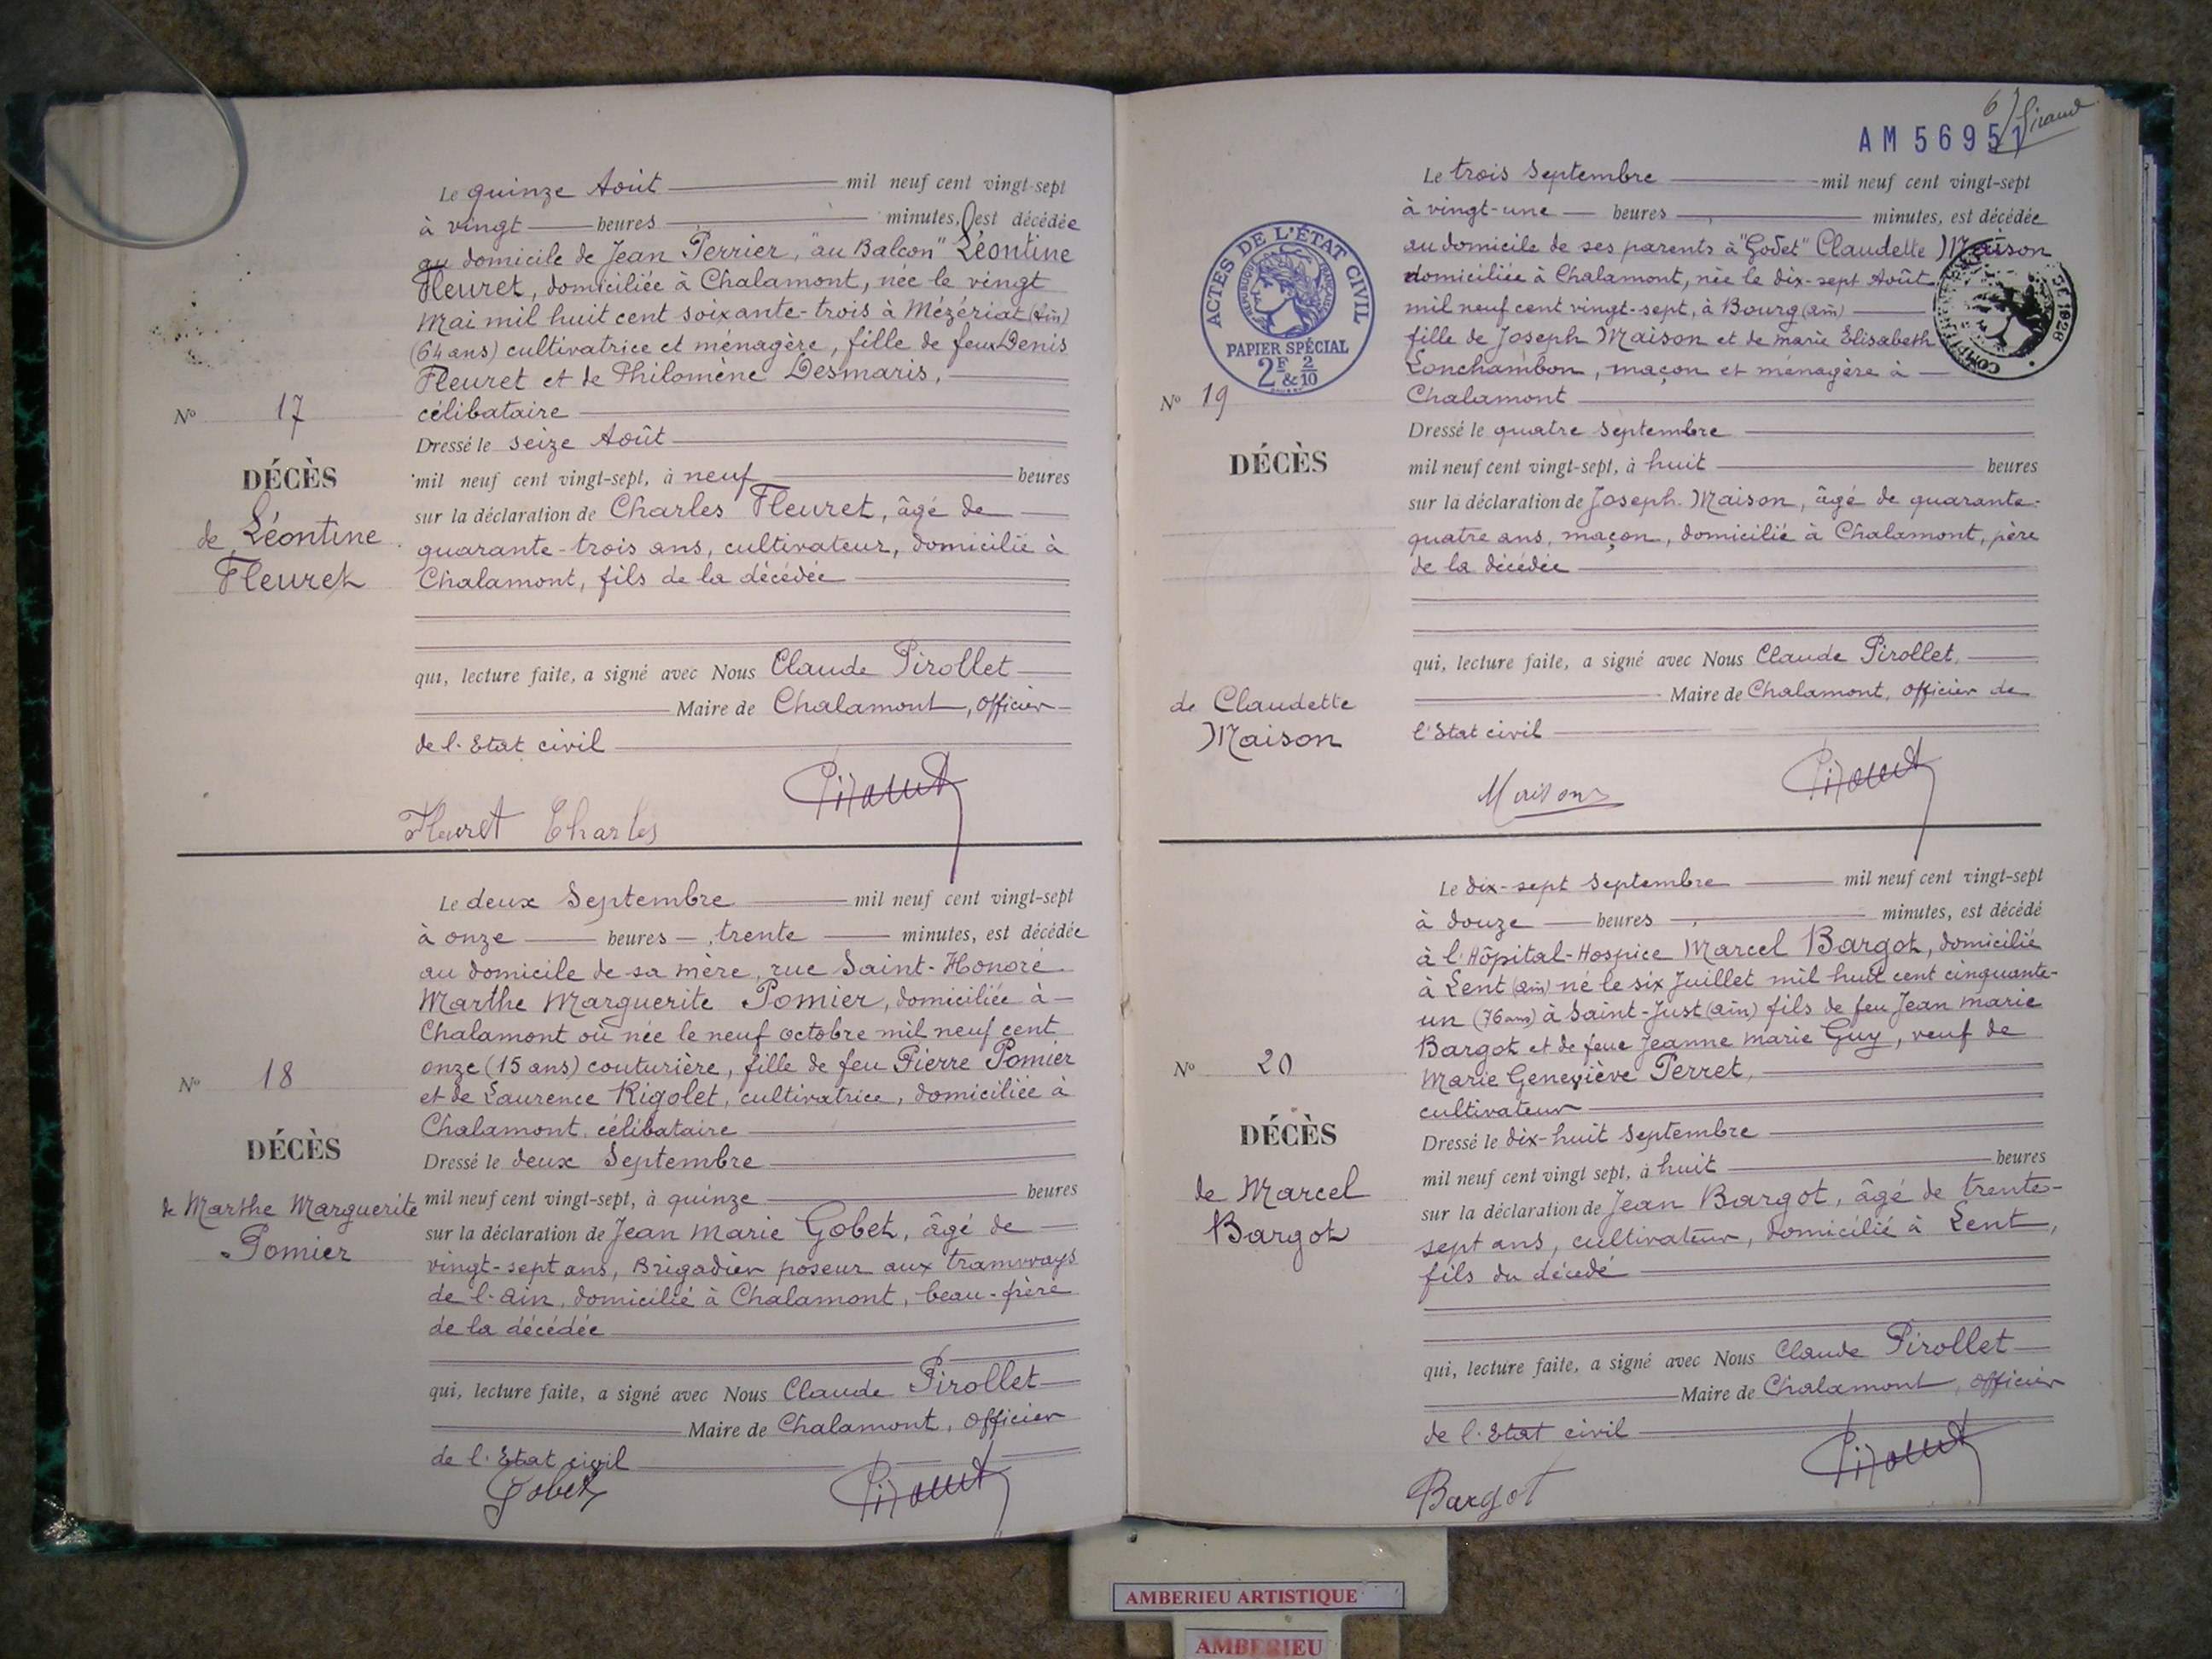 Le quinze Août mil neuf cent vingt-sept
à vingt heures minutes, est décédée
au domicile de Jean Perrier, "au Balcon" Léontine
Fleuret, domiciliée à Chalamont, née le vingt
Mai mil huit cent soixante-trois à Mézériat (Ain)
(64 ans) cultivatrice et ménagère, fille de feux Denis
Fleuret et de Philomène Desmaris,
célibataire
Nº 17
Dressé le seize Août
DÉCÈS
mil neuf cent vingt-sept, à neuf heures
de Léontine
Fleuret
sur la déclaration de Charles Fleuret, âgé de
quarante-trois ans, cultivateur, domicilié à
Chalamont, fils de la décédée
qui, lecture faite, a signé avec Nous Claude Pirollet
Maire de Chalamont, Officier
de l'Etat civil
Fleuret Charles
Le deux Septembre mil neuf cent vingt-sept
à onze heures trente minutes, est décédée
au domicile de sa mère, rue Saint-Honoré
Marthe Marguerite Pomier, domiciliée à
Chalamont où née le neuf octobre mil neuf cent
onze (15 ans) couturière, fille de feu Pierre Pomier
et de Laurence Rigolet, cultivatrice, domiciliée à
Chalamont, célibataire
Nº 18
Dressé le deux Septembre
DÉCÈS
de Marthe Marguerite
Pomier
mil neuf cent vingt-sept, à quinze heures
sur la déclaration de Jean Marie Gobet, âgé de
vingt-sept ans, Brigadier poseur aux tramways
de l'Ain, domicilié à Chalamont, beau-frère
de la décédée
qui, lecture faite, a signé avec Nous Claude Pirollet
Maire de Chalamont, Officier
de l'Etat civil
Gobet
6
AM 56951
Le trois Septembre mil neuf cent vingt-sept
à vingt-une heures minutes, est décédée
au domicile de ses parents à "Godet" Claudette Maison
domiciliée à Chalamont, née le dix-sept Août
mil neuf cent vingt-sept, à Bourg (Ain)
fille de Joseph Maison et de marie Elisabeth
Lonchambon, maçon et ménagère à
Chalamont
ACTES DE L'ÉTAT CIVIL
RÉPUBLIQUE FRANÇAISE
PAPIER SPÉCIAL
2F & 2/10
DE 1926
Nº 19
Dressé le quatre Septembre
DÉCÈS
mil neuf cent vingt-sept, à huit heures
sur la déclaration de Joseph Maison, âgé de quarante-
quatre ans, maçon, domicilié à Chalamont, père
de la décédée
de Claudette
Maison
qui, lecture faite, a signé avec Nous Claude Pirollet,
Maire de Chalamont, Officier de
l'Etat civil
Le dix-sept Septembre mil neuf cent vingt-sept
à douze heures minutes, est décédé
à l'Hôpital-Hospice Marcel Bargot, domicilié
à Lent (Ain) né le six Juillet mil huit cent cinquante-
un (76 ans) à Saint-Just (Ain) fils de feu Jean marie
Bargot et de feue Jeanne marie Guy, veuf de
Marie Geneviève Perret,
cultivateur
Nº 20
Dressé le dix-huit Septembre
DÉCÈS
de Marcel
Bargot
mil neuf cent vingt sept, à huit heures
sur la déclaration de Jean Bargot, âgé de trente-
sept ans, cultivateur, domicilié à Lent,
fils du décédé
qui, lecture faite, a signé avec Nous Claude Pirollet
Maire de Chalamont, Officier
de l'Etat civil
Bargot
AMBERIEU ARTISTIQUE
AMBERIEU